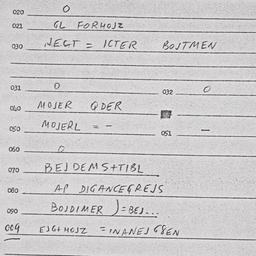 020 0
021 GL FORHOJZ
030 JEGT = ICTER BOJTMEN
031 0 032 0
040 MOJER QDER
050 MOJERL = - 051 -
060 0
070 BEJDEMS+TIBL
080 AP DIGANCEGREJS
090 BOJDIMER ) = BEJ...
009 EJGHOJZ = INANEJ G8EN